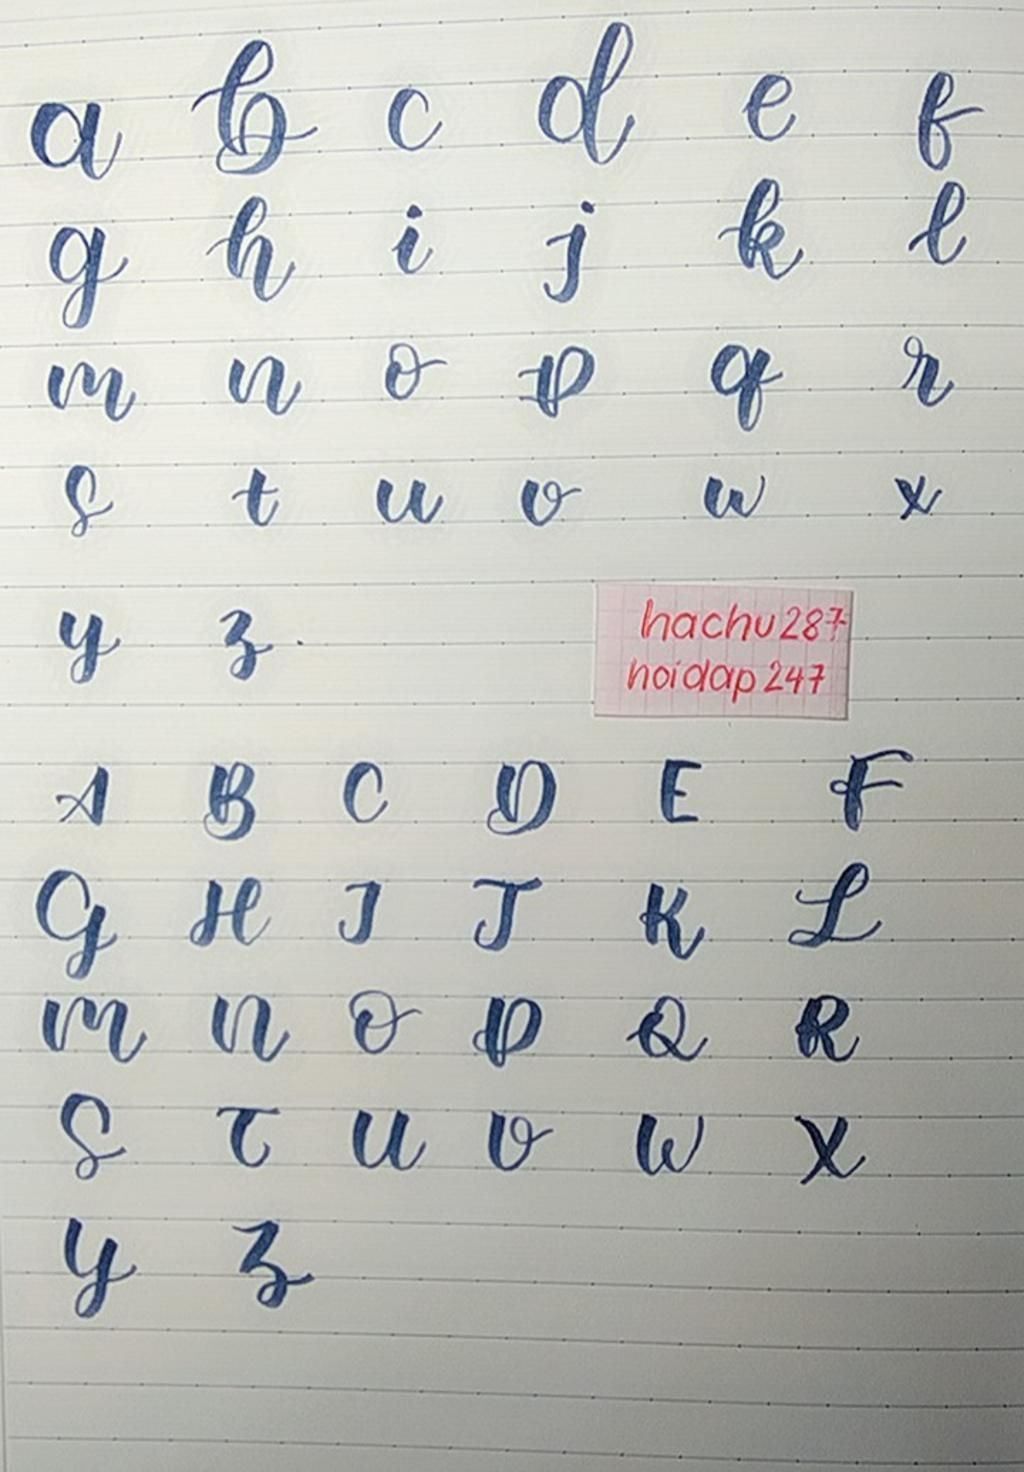 a b c d e f
g h i j k l
m n o p q r
s t u v w x
y z
hachu287
hoidap247
A B C D E F
G H I J K L
M N O P Q R
S T U V W X
Y Z